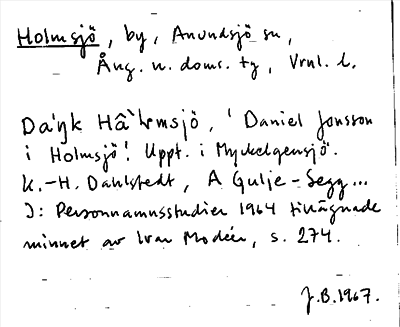 Holmsjö, by, Anundsjö sn,
Ång. n. doms. tg, Vrnl. l.
Da'ŋk Hâ`ɫmsjö, 'Daniel Jonsson
i Holmsjö'. Uppt. i Myckelgensjö.
K.-H. Dahlstedt, A Gulje-Segg...
I: Personnamnsstudier 1964 tillägnade
minnet av Ivar Modéer, s. 274.
J.B. 1967.